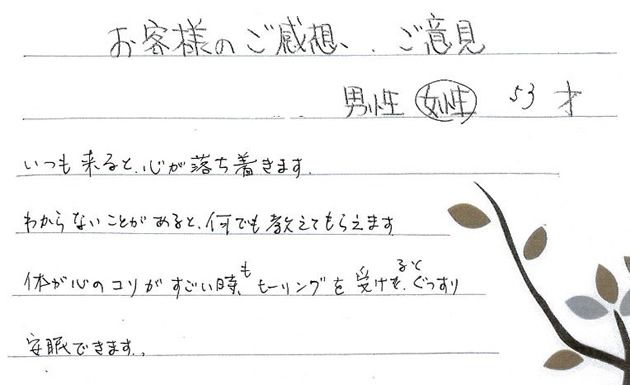 お客様のご感想、ご意見
男性 女性 53才
いつも来ると、心が落ち着きます。
わからないことがあると、何でも教えてもらえます
体が心のコリがすごい時も、ヒーリングを受けると、ぐっすり
安眠できます。